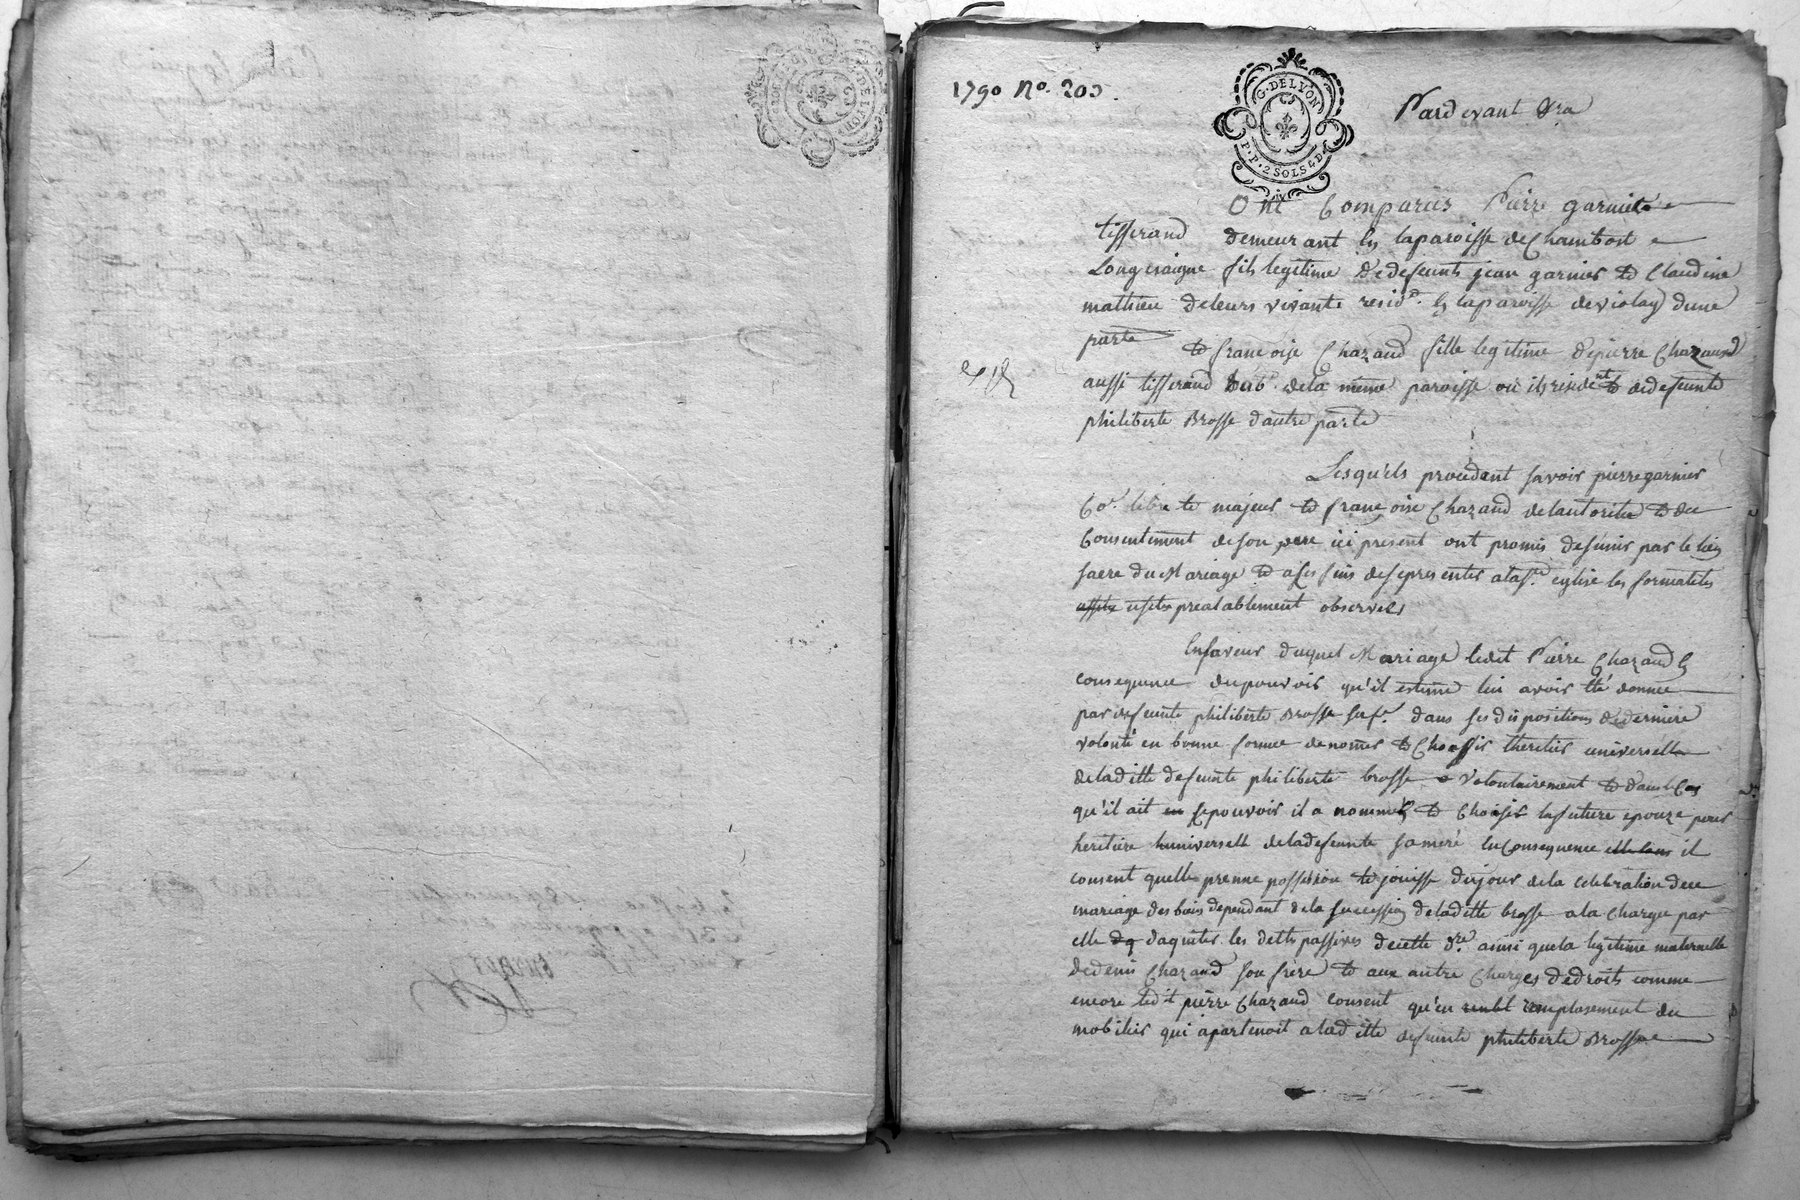 1790 No. 203.
G. DE LYON
P. P. 2 SOLS 4 D.
Pardevant &ra
Ont Comparus Pierre garnier
tisserand demeurant En la paroisse de Chambost
Longesaigne fils legitime de defeunts jean garnier et Claudine
mathieu de leurs vivants resid.t En la paroisse de violay dune
parte
et francoise Chazaud fille legitime de pierre Chazaud
aussi tisserand hab.t de la même paroisse ou ils resident et de defeunte
philiberte Brosse dautre parte
Lesquels procedent savoir pierre garnier
Co.e libre et majeur et francoise Chazaud de lautorite et du
Consentement de son pere ici present ont promis de sunir par le lien
sacre du Mariage et a ses fins de se presenter a la s.te eglise les formalités
usites prealablement observees
En faveur duquel Mariage ledit Pierre Chazaud En
consequence du pouvoir qu'il estime lui avoir été donnée
par defeunte philiberte Brosse sa f.e dans ses dispositions de derniere
volonté en bonne forme de nomer et Choisir lheretier universelle
de laditte defeunte philiberte brosse volontairement et dans le Cas
qu'il ait ce pouvoir il a nommé et Choisir la future epouze pour
heritiere huniverselle de la defeunte sa meré En consequence il
consent quelle prenne possession et jouisse du jour de la celebration de ce
mariage des biens dependant de la succession de laditte brosse a la charge par
elle daquiter les detts passives de cette d.re ainsi que la legitime maternelle
de denis Chazaud son frère et aux autre charges de droits comme
encore led.t pierre Chazaud consent qu'en remplasement du
mobilier qui apartenoit a laditte defeunte philiberte Brosse